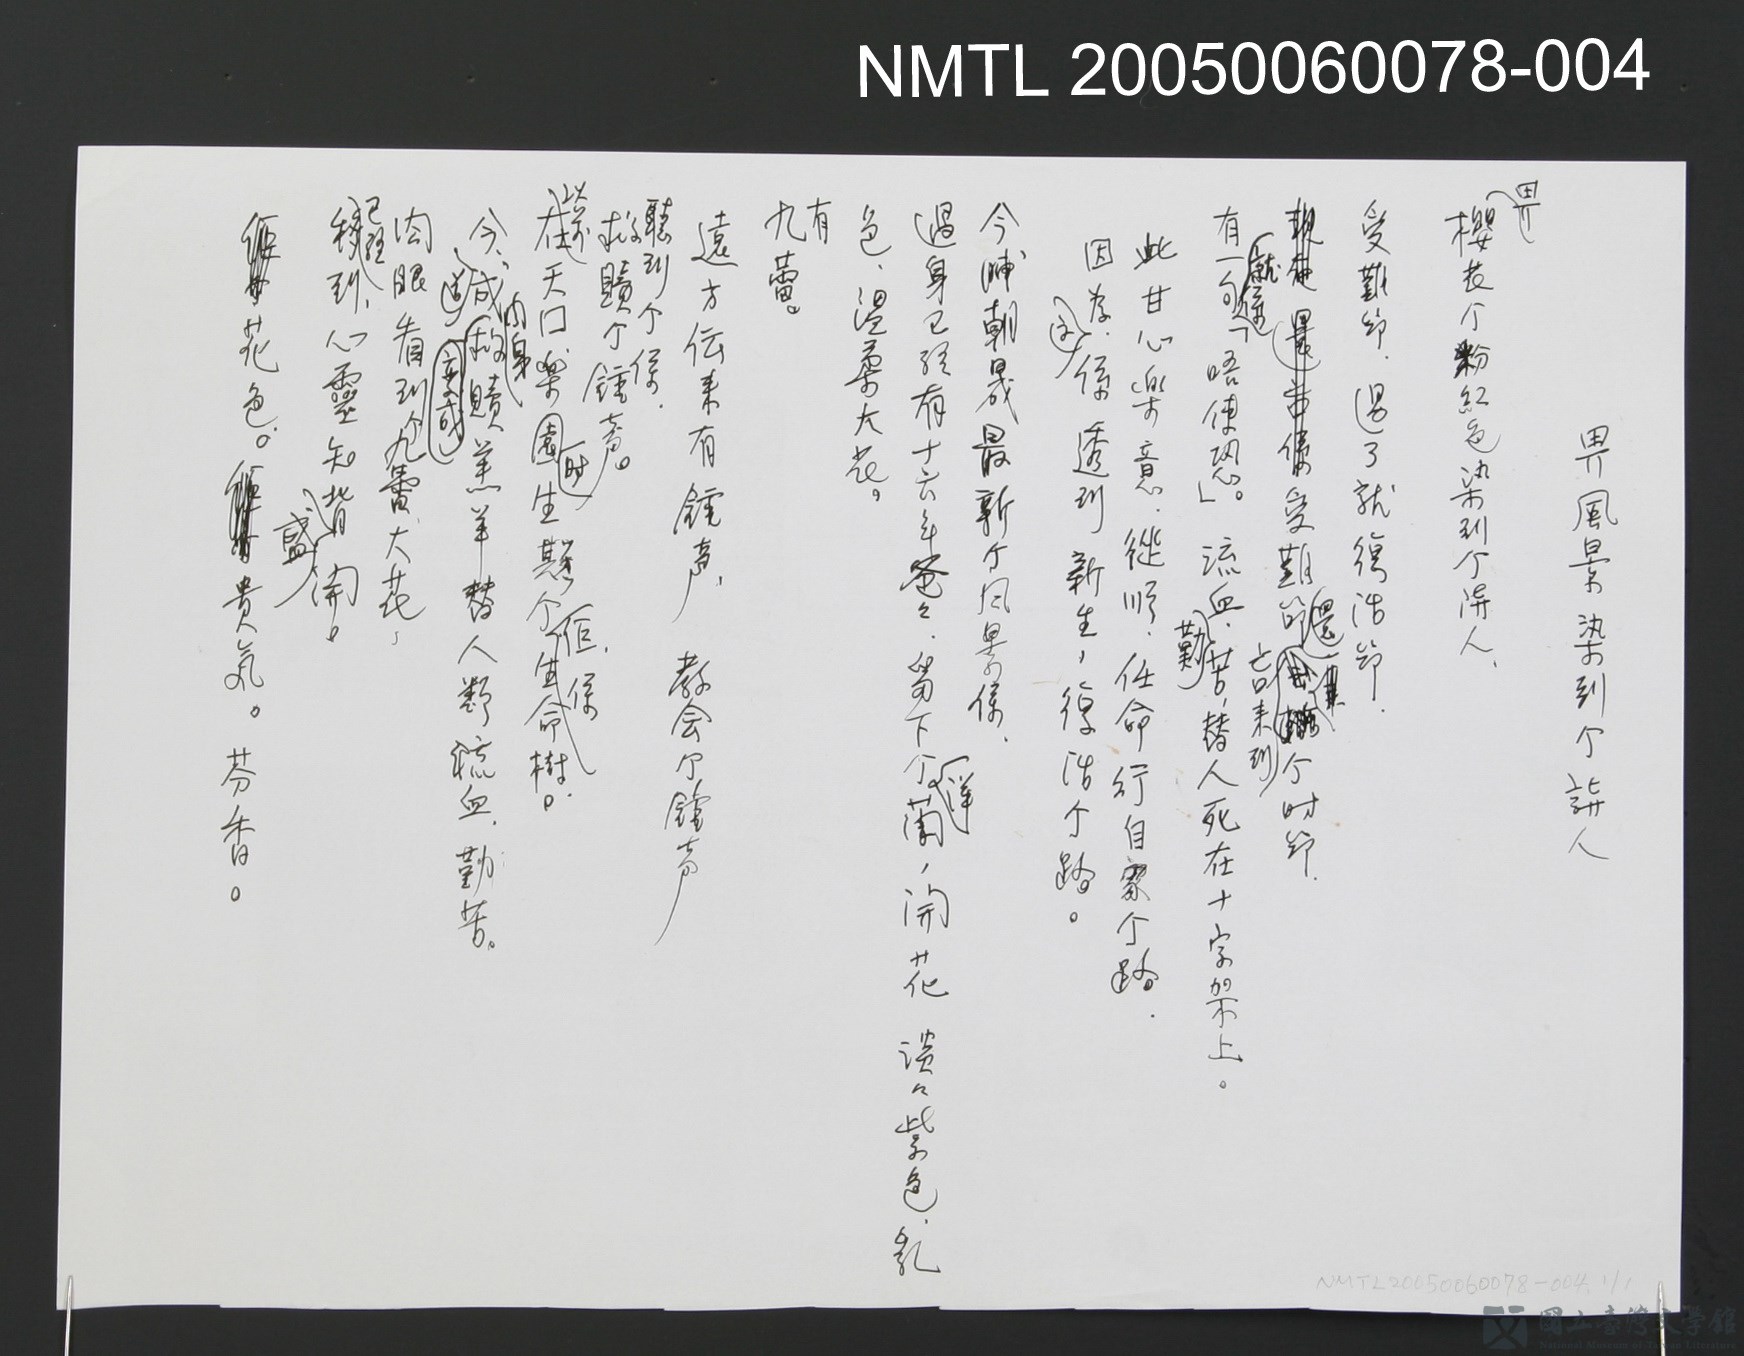 NMTL 20050060078-004
畀風景染到个詳人
畀
櫻花个粉紅色染到个詳人、
受難節．過了就復活節．
係受難節 還 个时節．
就係 言来到
有一句「唔使恐」。流血．勤苦，替人死在十字架上。
此甘心樂意．從順．任命行自家个路．
因為．係透到新生，復活个路。
今晡朝晨最新个风景係．
過身已經有十六年爸々．留下个洋蘭，開花 淡々紫色、乳
色、溫柔大花。
有
九蕾。
遠方伝来有鐘声， 教会个鐘声
聽到个係．
救贖个鐘声。
在天门樂園 时 生戀个 但．係 生命樹。
今、成 肉身 救贖羔羊替人類流血．勤苦。
肉眼看到个九蕾大花，
已經
到、心靈知背 盛 開。
花色。 貴氣。芬香。
NMTL20050060078-004 1/1
國立臺灣文學館
National Museum of Taiwan Literature